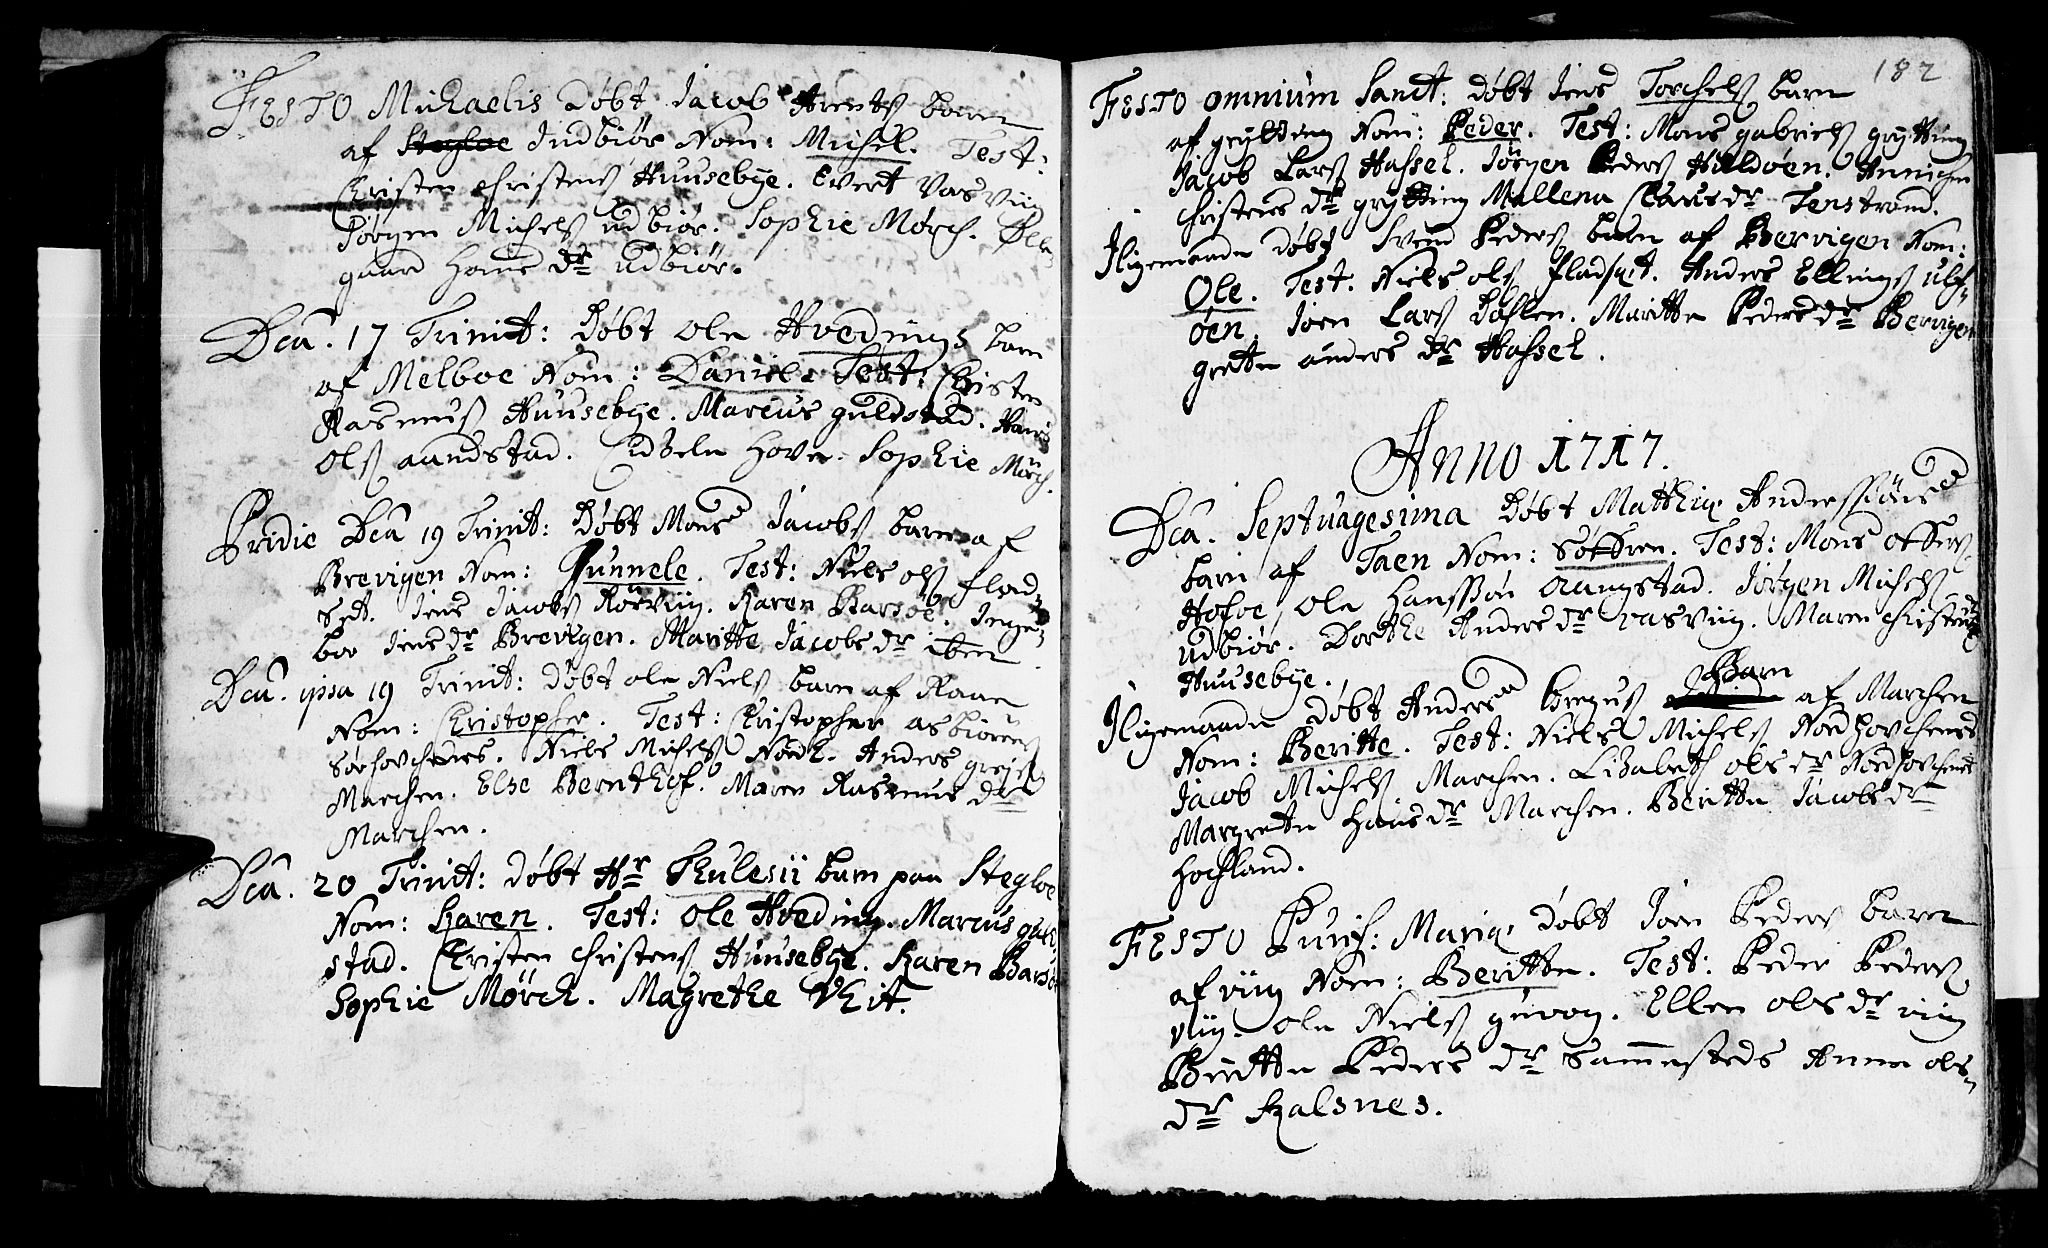 FESTO Michaelis Døbt Jacob Arentß barn
af Stegloe Indbiør Nom: Michel. Test:
Christen Christenß Huusebÿe. Evert Vasviig
Jørgen Michelß udbiør. Sophie Mørch. Øllegaard Hans dr udbiør.
Dca. 17 Trinit: Døbt Ole Hvedings barn
af Melboe Nom: Daniel. Test: Christen
Rasmusß Huusebÿe. Marcus guldstad. Hans
Olß aandstad. Cidzele Hove. Sophie Mørch.
Pridie Dca 19 Trinit: Døbt Mons Jacobß barn af
Brevigen Nom: Gunnele. Test: Niels olß flad-
set. Jens Jacobß Rørviig. Karen Barsøe. Inge-
bor Jensdr Brevigen. Maritte Jacobsdr ibm
Dca. ipsa 19 Trinit: døbt ole Nielß barn af Raae
Nom: Christopher. Test: Christopher asbiørnß
Sørhovchenes. Niels Michelß Nordh. Anders gregß
Marchen. Else Bernthof. Maren Rasmus dr
Marchen.
Dca. 20 Trinit: døbt Hr Thulesii barn paa Stegloe
Nom: Karen. Test: Ole Hveding. Marcus guld-
stad. Christen Christenß Huusebÿe. Karen Barsøe
Sophie Mørch. Magrethe Vhit.
182
FESTO omnium Sanct: døbt Jens Torchelß barn
af grÿtting Nom: Peder. Test: Mons gabrielß grÿtting
Jacob Larß Hassel. Jørgen Pederß Hilldøen. Annichen
Christens dr grÿtting Mallena Clausdr Tenstrand.
Iligemaade døbt Svend Pederß barn af Bervigen Nom:
Ole. Test. Niels olß fladset. Anders Ellingß ulf-
øen. Joen Larß Døsken. Maritte Pedersdr Bervigen
grette anders dr Hassel.
Anno 1717.
Dca. Septuagesima Døbt Matthiæ Anderssøns
barn af Taen Nom: Søffren. Test: Mons otterß
Hofoe, Ole Hanssøn aangstad. Jørgen Michelß
udbiør. Dorthe Anders dr vasviig. Maren Christensdr
Huusebÿe.
Iligemaade døbt Anders Gregusß Barn af Marchen
Nom: Beritte. Test: Niels Michelß Nordhovchenes
Jacob Michelß Marchen. Lisabeth olsdr Nordhovchenes
Margrete Hansdr Marchen. Beritte Jacobsdr
Hochland.
FESTO Purif: Mariæ døbt Joen Pederß barn
af viig Nom: Beritte. Test: Peder Pederß
viig. ole Nielß guvog. Ellen olsdr viig
Biritte Peders dr Sammesteds Anna ols-
dr Kalsnes.